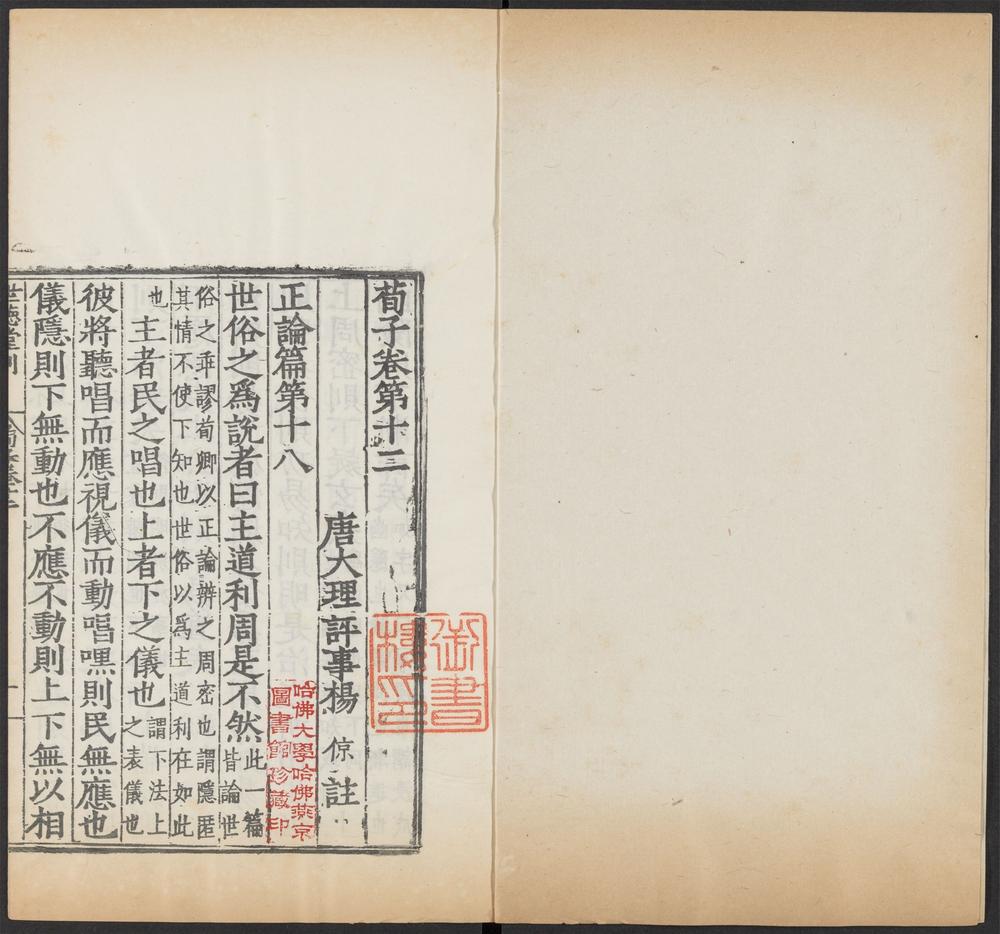 荀子卷第十三
唐大理評事楊倞註
正論篇第十八
世俗之爲說者曰主道利周是不然此一篇皆論世
俗之乖謬荀卿以正論辨之周密也謂隱匿
其情不使下知也世俗以爲主道利在如此
也主者民之唱也上者下之儀也謂下法上之表儀也
彼將聽唱而應視儀而動唱嘿則民無應也
儀隱則下無動也不應不動則上下無以相
世德堂刊
御書
哈佛大學哈佛燕京
圖書館珍藏印